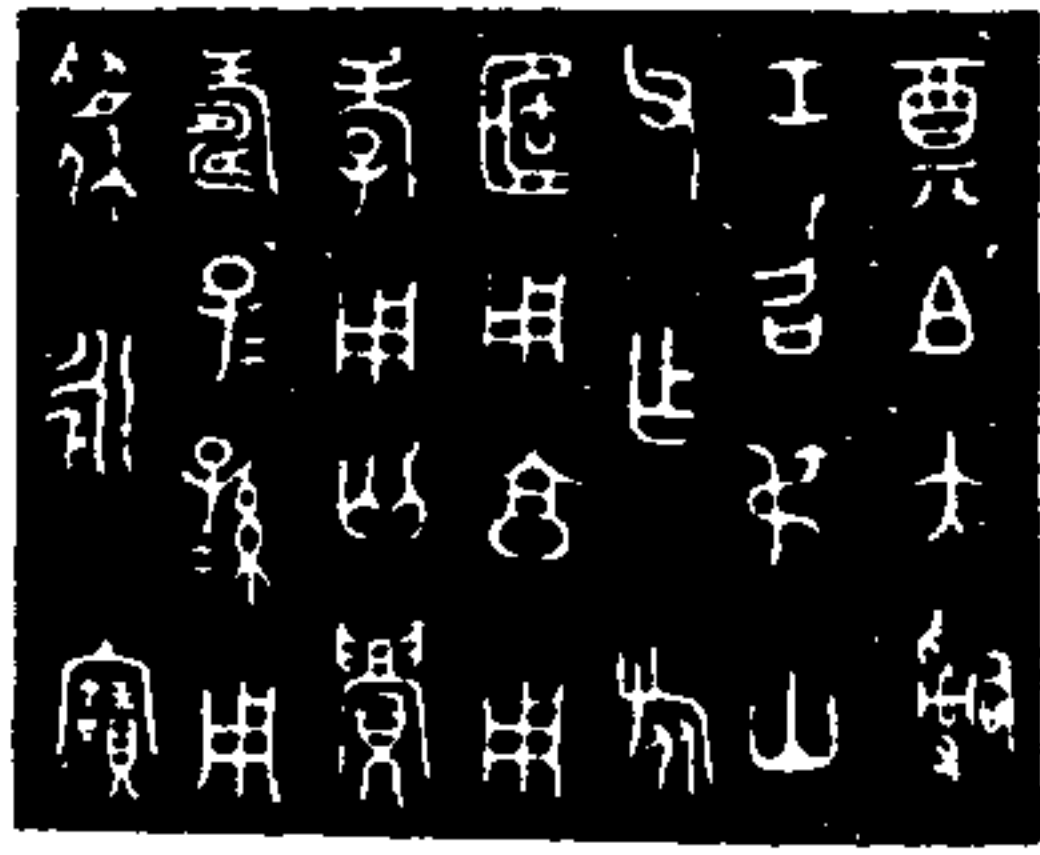 奠白大嗣
工召弔山
父乍旅
𠤳用享用
孝用匄眉
壽子=孫=用
為永寶